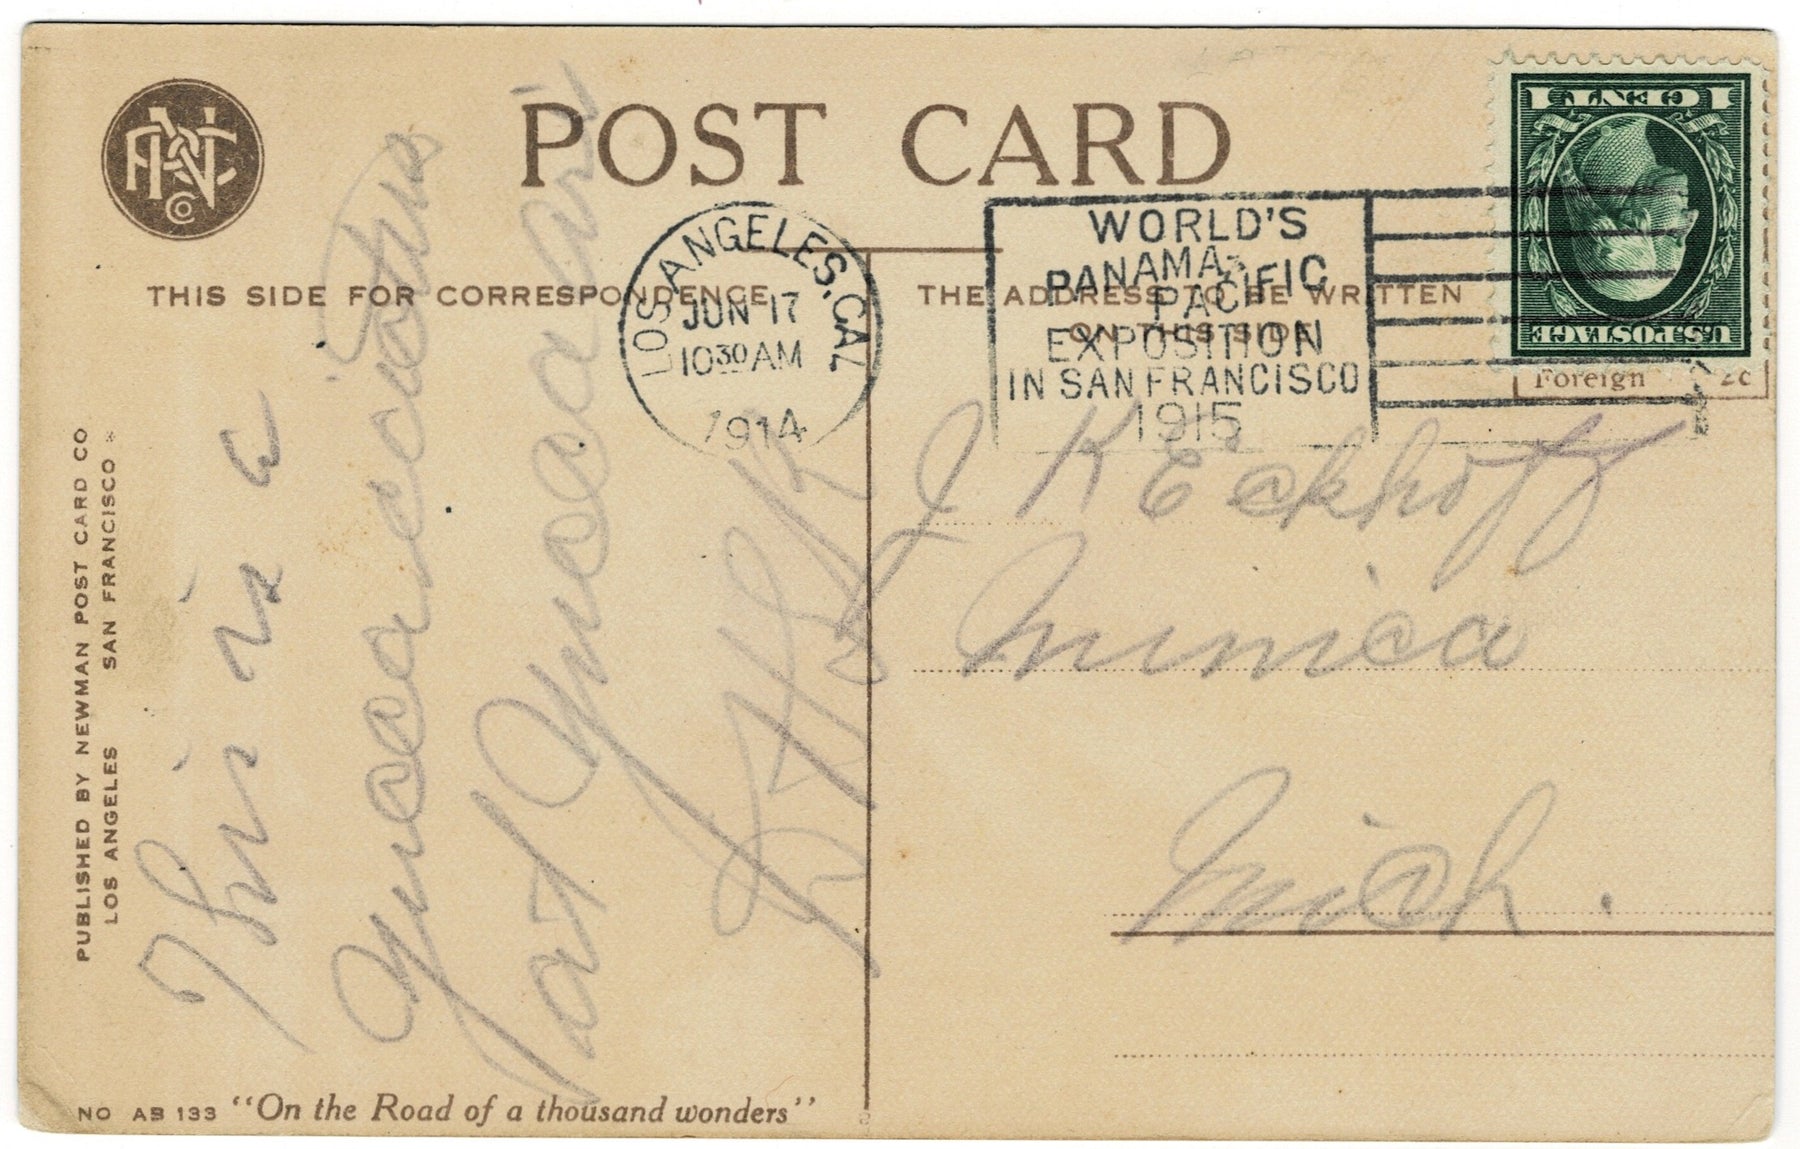 ANPC Co
POST CARD
LOS ANGELES, CAL
JUN 17
10 30 AM
1914
WORLD'S
PANAMA-
PACIFIC
EXPOSITION
IN SAN FRANCISCO
1915
1 CENT 1
U.S. POSTAGE
Foreign 2c
THIS SIDE FOR CORRESPONDENCE
THE ADDRESS TO BE WRITTEN
ON THIS SIDE
This is a
at
J K Eckhoff
Nunica
Mich.
PUBLISHED BY NEWMAN POST CARD CO
LOS ANGELES SAN FRANCISCO
NO AB 133 "On the Road of a thousand wonders"